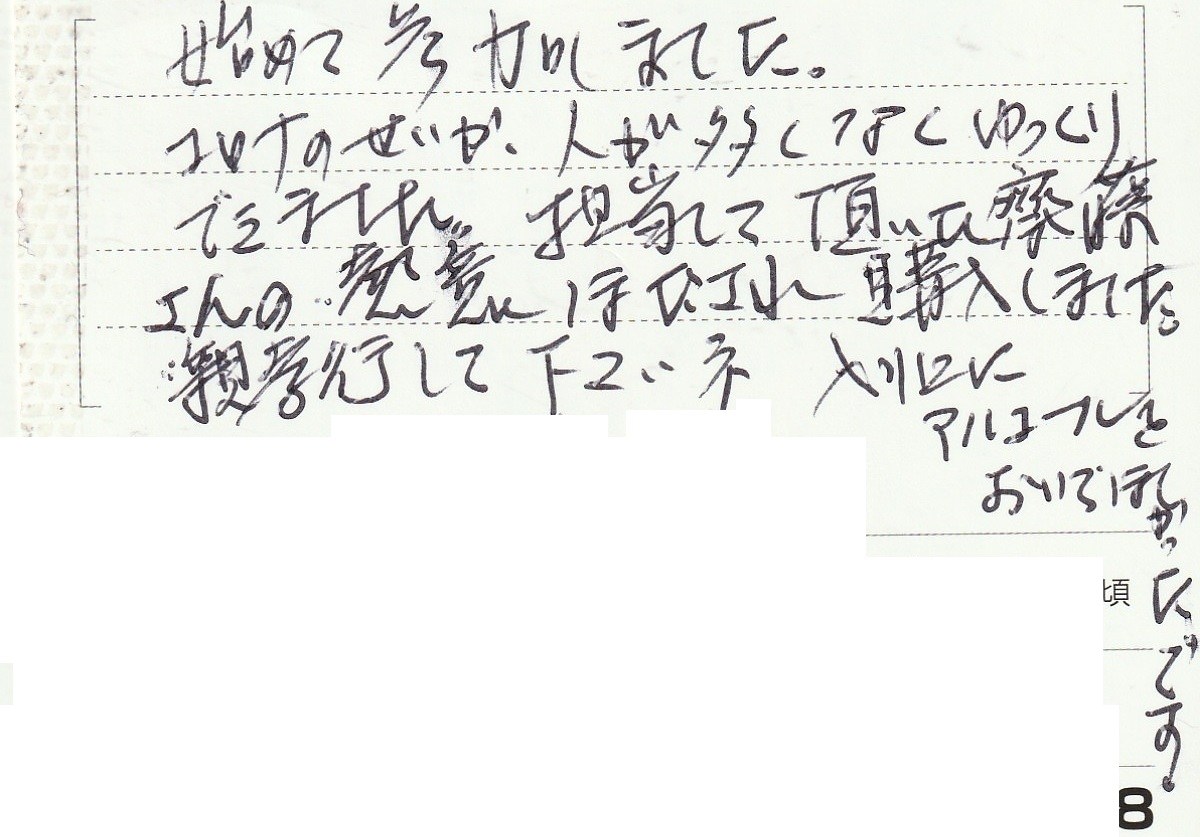 始めて参加しました。
コロナのせいか、人が多くなくゆっくり
できました。担当して頂いた齊藤
さんの熱意にほだされ購入しました。
親孝行して下さいネ 入口に
アルコールを
おいてほしかったです。
頃
8